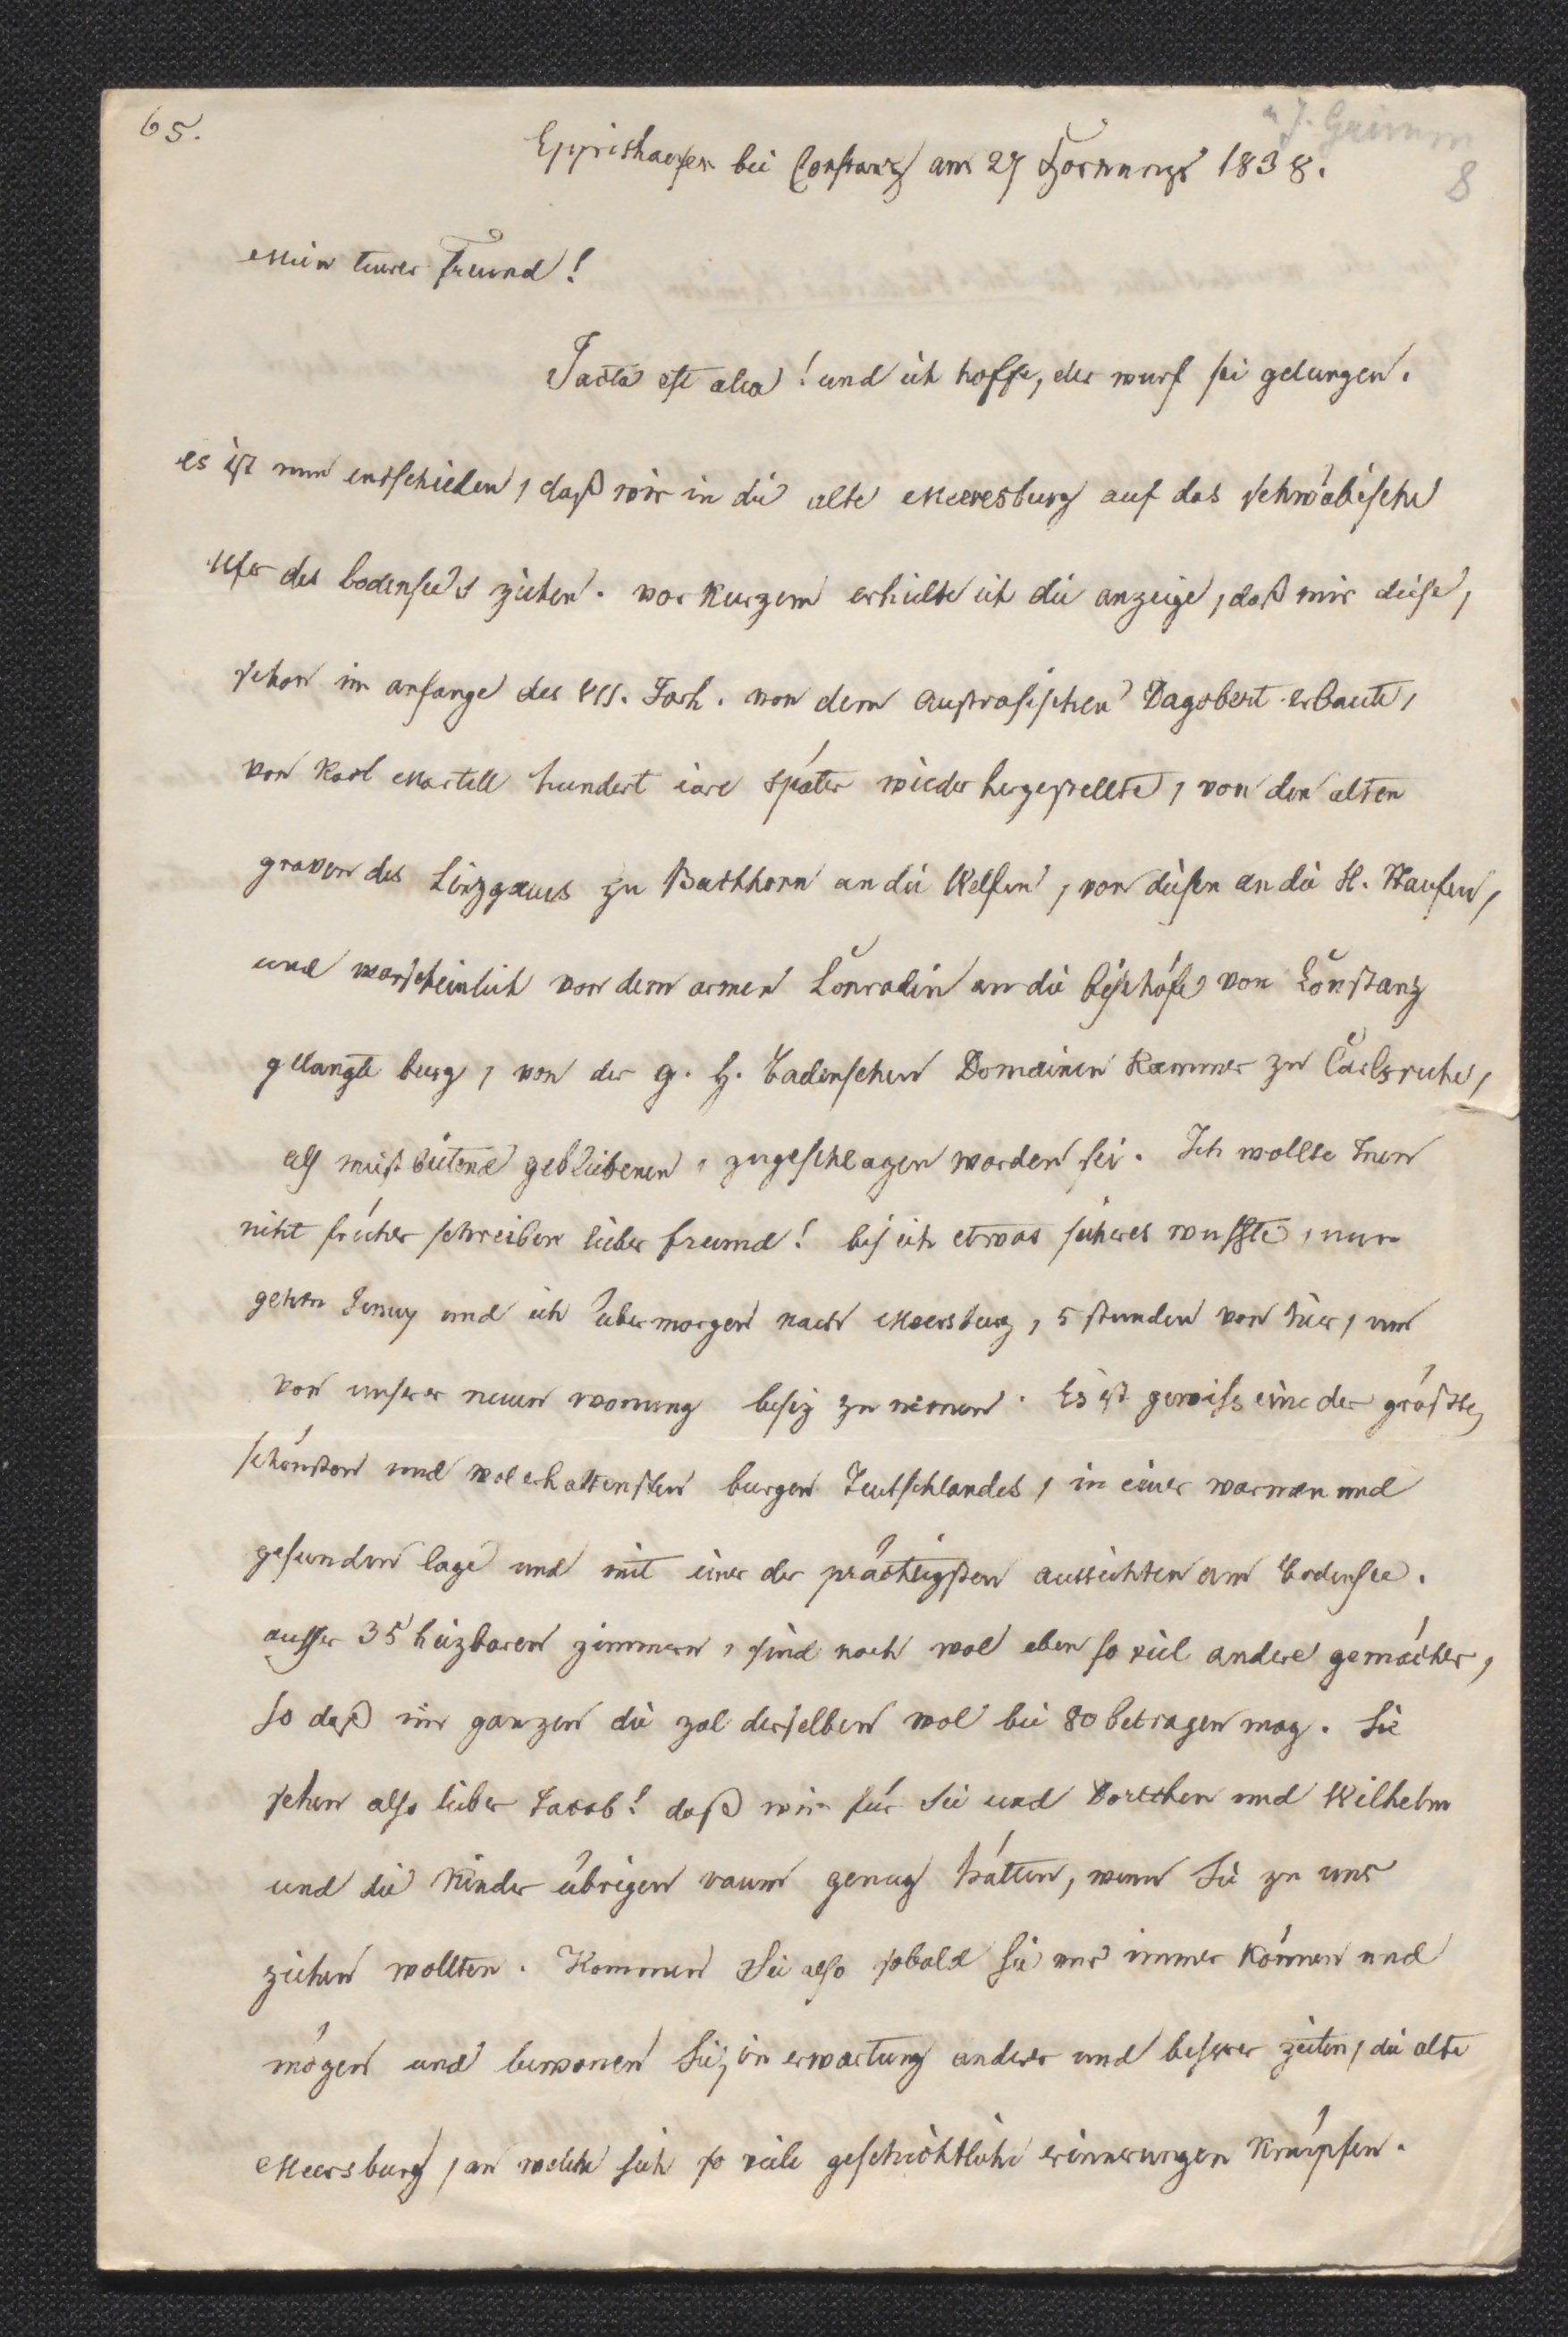 65.
an J. Grimm
8
Eppishausen bei Constanz am 27 Hornungs 1838.
Mein teurer Freund!
Jacta est alea! und ich hoffe, der wurf sei gelungen.
es ist nun entschieden, daß wir in die alte Meeresburg auf das schwäbische
ufer des bodensees ziehen. vor kurzem erhielte ich die anzeige, daß mir diese,
schon im anfange des VII. Jarh. von dem austrasischen Dagobert erbaute,
von Karl Martell hundert iare später wieder hergestellte, von den alten
graven des Linzgaues zu Buchhorn an die Welfen, von diesen an die H. Staufen,
und warscheinlich von dem armen Conradin an die bischöfe von Constanz
gelangte burg, von der g. h. Badenschen Domainen Kammer zu Carlsruhe,
als meistbietend gebliebenen, zugeschlagen worden sei. Ich wollte Inen
nicht früher schreiben lieber freund! bis ich etwas sicheres wusste, nun
gehen Jenny und ich übermorgen nach Meersburg, 5 stunden von hier, um
von unserer neuen wonung besiz zu nemen. Es ist gewiss eine der größten,
schönsten und wolerhaltensten burgen Teutschlandes, in einer warmen und
gesunden lage und mit einer der prächtigsten aussichten am bodensee.
ausser 35 heizbaren zimmern, sind noch wol eben so viel andere gemächer,
so daß im ganzen die zal derselben wol bei 80 betragen mag. Sie
sehen also lieber Jacob! daß wir für Sie und Dortchen und Wilhelm
und die Kinder übrigen raum genug hätten, wenn Sie zu uns
ziehen wollten. Kommen Sie also sobald Sie nur immer können und
mögen und bewonen Sie, in erwartung anderer und besserer zeiten, die alte
Meersburg, an welche sich so viele geschichtliche erinnerungen knüpfen.